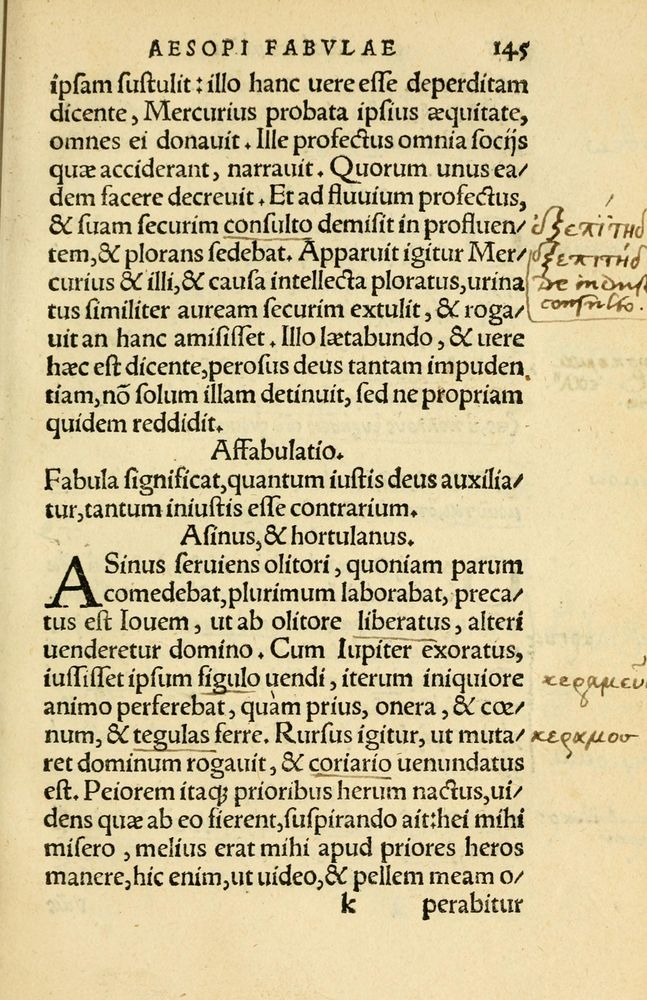 AESOPI FABVLAE 145
ipsam sustulit: illo hanc uere esse deperditam
dicente, Mercurius probata ipsius æquitate,
omnes ei donauit. Ille profectus omnia socijs
quæ acciderant, narrauit. Quorum unus ea/
dem facere decreuit. Et ad fluuium profectus,
& suam securim consulto demisit in profluen/
tem, & plorans sedebat. Apparuit igitur Mer/
curius & illi, & causa intellecta ploratus, urina
tus similiter auream securim extulit, & roga/
uit an hanc amisisset. Illo lætabundo, & uere
hæc est dicente, perosus deus tantam impuden
tiam, nō solum illam detinuit, sed ne propriam
quidem reddidit.
Affabulatio.
Fabula significat, quantum iustis deus auxilia/
tur, tantum iniustis esse contrarium.
Asinus, & hortulanus.
ASinus seruiens olitori, quoniam parum
comedebat, plurimum laborabat, preca/
tus est Iouem, ut ab olitore liberatus, alteri
uenderetur domino. Cum Iupiter exoratus,
iussisset ipsum figulo uendi, iterum iniquiore
animo perferebat, quàm prius, onera, & cœ/
num, & tegulas ferre. Rursus igitur, ut muta/
ret dominum rogauit, & coriario uenundatus
est. Peiorem itaqꝫ prioribus herum nactus, ui/
dens quæ ab eo fierent, suspirando ait: hei mihi
misero, melius erat mihi apud priores heros
manere, hic enim, ut uideo, & pellem meam o/
k perabitur
consulto.
κεραμεὺ
κεραμοσ